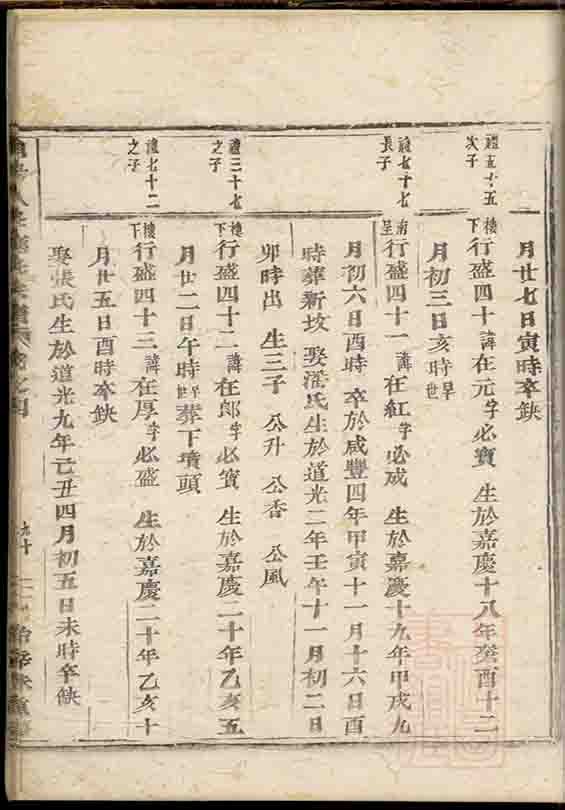 月廿七日寅時卒缺
禮五十五
次子
樓下行盛四十諱在元字必寶 生於嘉慶十八年癸酉十二
月初三日亥時早世
禮七十七
長子
南呈行盛四十一諱在紅字必成 生於嘉慶十九年甲戌九
月初六日酉時 卒於咸豐四年甲寅十一月十六日酉
時葬新坟 娶潘氏生於道光二年壬午十一月初二日
卯時出 生三子 公升 公香 公風
禮三十七
之子
樓下行盛四十二諱在郎字必賓 生於嘉慶二十年乙亥五
月廿二日午時早世葬下墳頭
禮七十二
之子
樓下行盛四十三諱在厚字必盛 生於嘉慶二十年乙亥十
月廿五日酉時卒缺
娶張氏生於道光九年己丑四月初五日未時卒缺
九十一